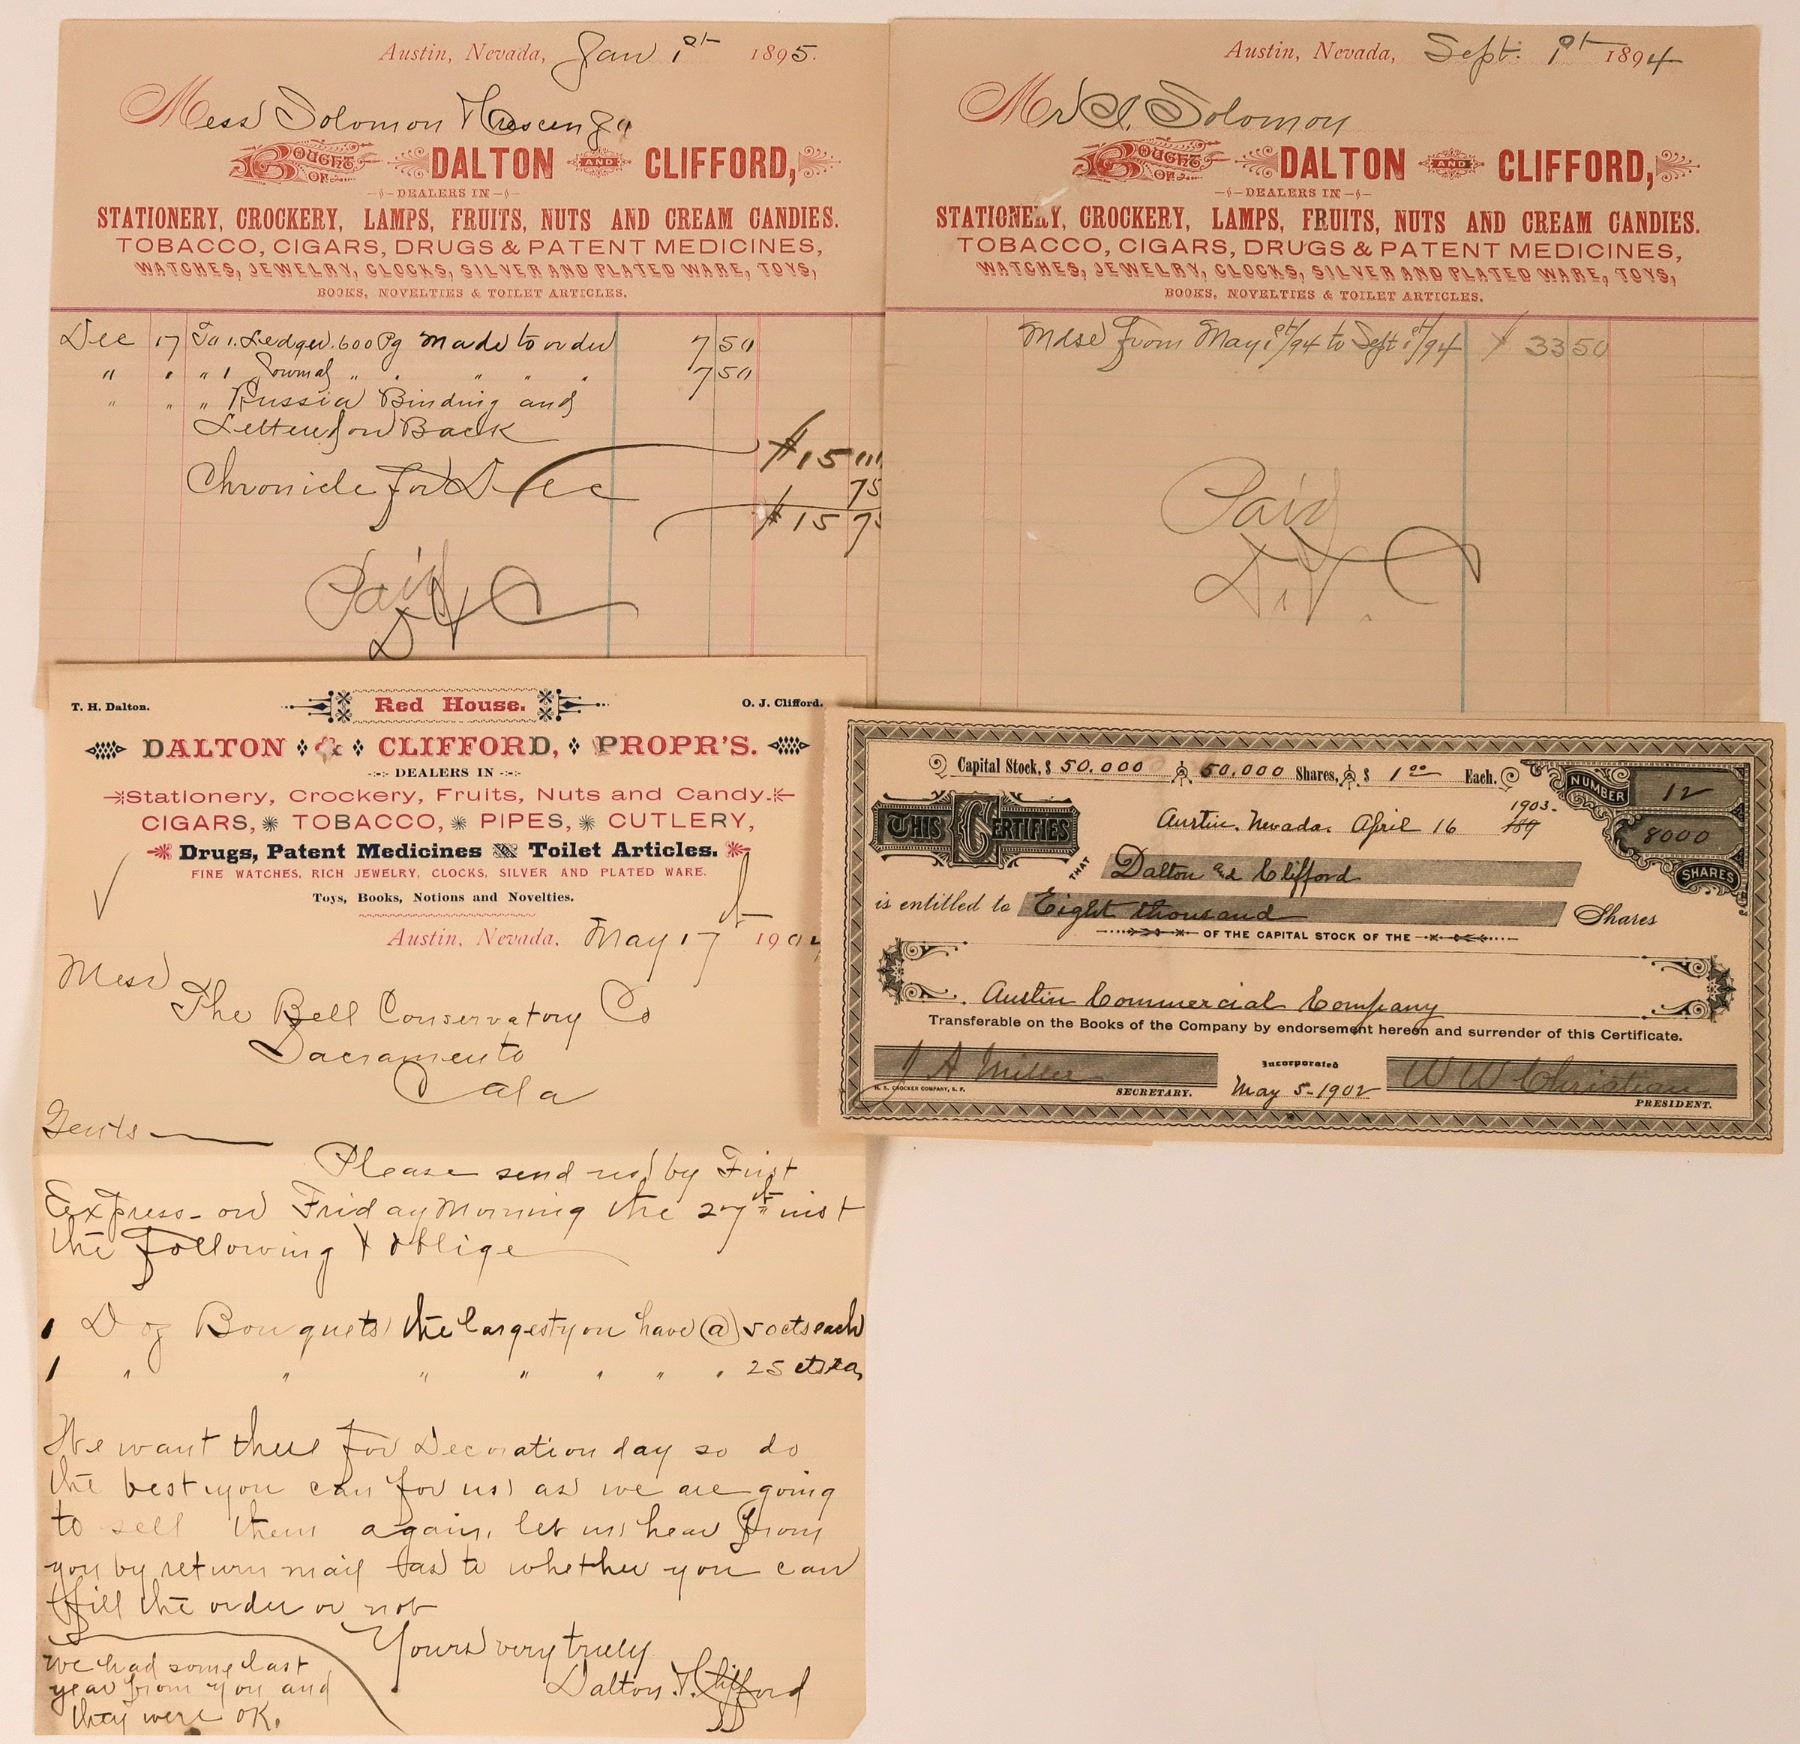 Austin, Nevada, Jan 1st 1895.
Mess Solomon
BOUGHT OF DALTON AND CLIFFORD,
DEALERS IN
STATIONERY, CROCKERY, LAMPS, FRUITS, NUTS AND CREAM CANDIES.
TOBACCO, CIGARS, DRUGS & PATENT MEDICINES,
WATCHES, JEWELRY, CLOCKS, SILVER AND PLATED WARE, TOYS,
BOOKS, NOVELTIES & TOILET ARTICLES.
Dec 17 To 1. Ledger. 600 Pg made to order 7 50
" " " 1 Journal " " " " 7 50
" " " Russia Binding and
Lettered on Back
$15
Chronicle for Dec 75
$15 75
Paid
D & C
Austin, Nevada, Sept. 1st 1894
Mr I. Solomon
BOUGHT OF DALTON AND CLIFFORD,
DEALERS IN
STATIONERY, CROCKERY, LAMPS, FRUITS, NUTS AND CREAM CANDIES.
TOBACCO, CIGARS, DRUGS & PATENT MEDICINES,
WATCHES, JEWELRY, CLOCKS, SILVER AND PLATED WARE, TOYS,
BOOKS, NOVELTIES & TOILET ARTICLES.
Mdse From May 1st/94 to Sept 1st/94 $ 33 50
Paid
D & C
T. H. Dalton. Red House. O. J. Clifford.
DALTON & CLIFFORD, PROPR'S.
DEALERS IN
Stationery, Crockery, Fruits, Nuts and Candy.
CIGARS, TOBACCO, PIPES, CUTLERY,
Drugs, Patent Medicines Toilet Articles.
FINE WATCHES, RICH JEWELRY, CLOCKS, SILVER AND PLATED WARE.
Toys, Books, Notions and Novelties.
Austin, Nevada, May 17th 190
Mess
The Bell Conservatory Co
Sacramento
Cala
Gents
Please send us by First
Express - on Friday Morning the 27th inst
the Following & oblige
1 Doz Bouquets the largest you have @ 50cts each
1 " " " " " " " 25 cts ea
We want these for Decoration day so do
the best you can for us as we are going
to sell them again, let us hear from
you by return mail as to whether you can
fill the order or not
Yours very truly
Dalton & Clifford
we had some last
year from you and
they were OK.
Capital Stock, $ 50,000 50,000 Shares, $ 1 00 Each.
NUMBER 12
8000
SHARES
THIS CERTIFIES
Austin, Nevada, April 16 1903. 189
THAT Dalton and Clifford
is entitled to Eight thousand Shares
OF THE CAPITAL STOCK OF THE
Austin Commercial Company
Transferable on the Books of the Company by endorsement hereon and surrender of this Certificate.
J A Miller Incorporated W W Christian
H. S. CROCKER COMPANY, S. F. SECRETARY. May 5-1902 PRESIDENT.